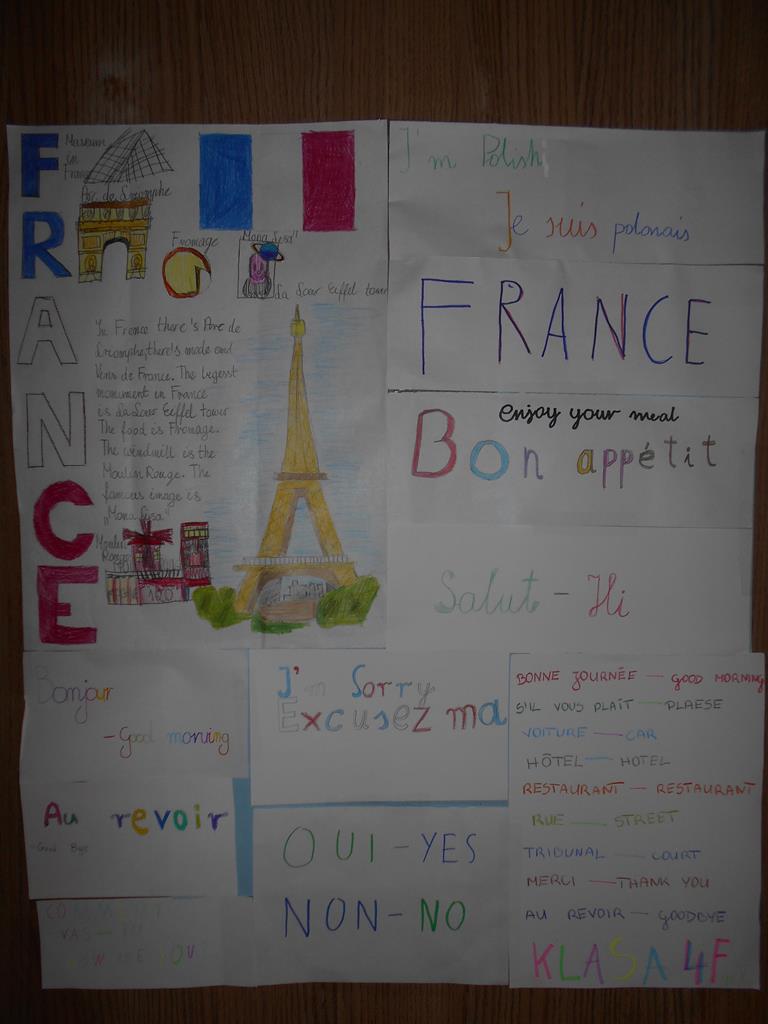 FRANCE
Museum
in
France
Arc de Scromphe
Fromage
Mona Lisa"
La Sour Eiffel tower
In France there's Arc de
Scromphe, there's mode and
Vins de France. The
monument in France
is La Sour Eiffel tower
The food is Fromage.
The windmill is the
Moulin Rouge. The
famous image is
„Mona Lisa"
Moulin
Rouge
I'm Polish
Je suis polonais
FRANCE
enjoy your meal
Bon appétit
Salut - Hi
Bonjour
- Good morning
I'm Sorry
Excusez ma
Au revoir
- Good Bye
COMMENT
VAS-TU
HOW ARE YOU?
OUI - YES
NON - NO
BONNE JOURNÉE — GOOD MORNING
S'IL VOUS PLAÎT — PLAESE
VOITURE — CAR
HÔTEL — HOTEL
RESTAURANT — RESTAURANT
RUE — STREET
TRIBUNAL — COURT
MERCI — THANK YOU
AU REVOIR — GOODBYE
KLASA 4F